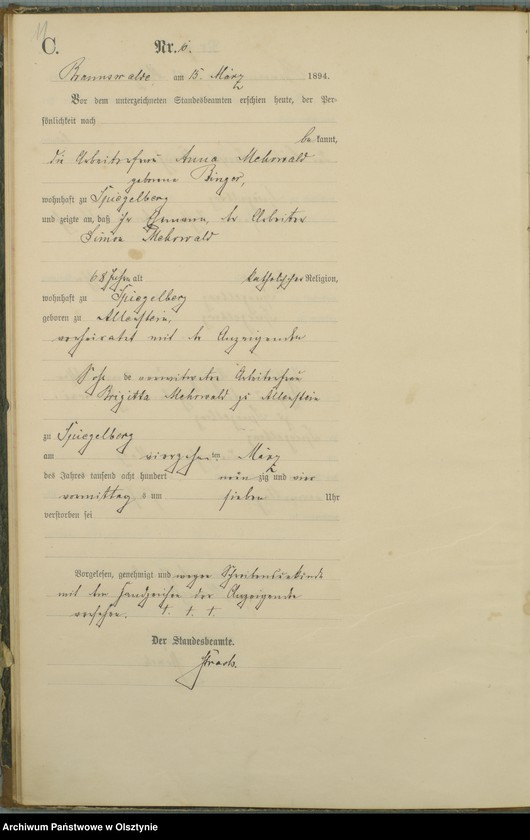 C. Nr. 6.
Braunswalde am 15. März 1894.
Vor dem unterzeichneten Standesbeamten erschien heute, der Per-
sönlichkeit nach
be kannt,
die Arbeiterfrau Anna Mehrwald
geborene Binger,
wohnhaft zu Spiegelberg
und zeigte an, daß ihr Ehemann, der Arbeiter
Simon Mehrwald
68 Jahre alt katholischer Religion,
wohnhaft zu Spiegelberg
geboren zu Allenstein,
verheiratet mit der Anzeigenden
Sohn der verwitweten Arbeiterfrau
Brigitta Mehrwald zu Allenstein
zu Spiegelberg
am vierzehn ten März
des Jahres tausend acht hundert neun zig und vier
vormittag s um sieben Uhr
verstorben sei
Vorgelesen, genehmigt und wegen Schreibensunkunde
mit dem Handzeichen der Anzeigenden
versehen. † † †
Der Standesbeamte.
Archiwum Państwowe w Olsztynie